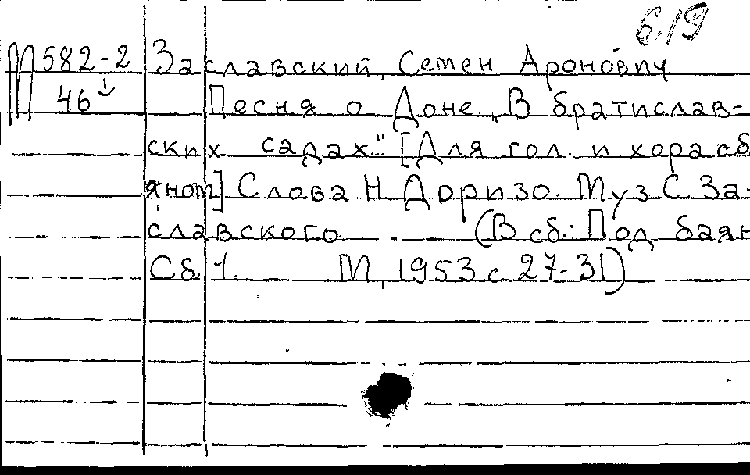 6.19
М 582-2 Заславский, Семен Аронович
46 Песня о Доне „В братислав-
ских садах." [Для гол. и хора с б
янот] Слова Н. Доризо. Муз С. За-
славского (В сб.: Под баян
Сб 1. М, 1953 с. 27-31)